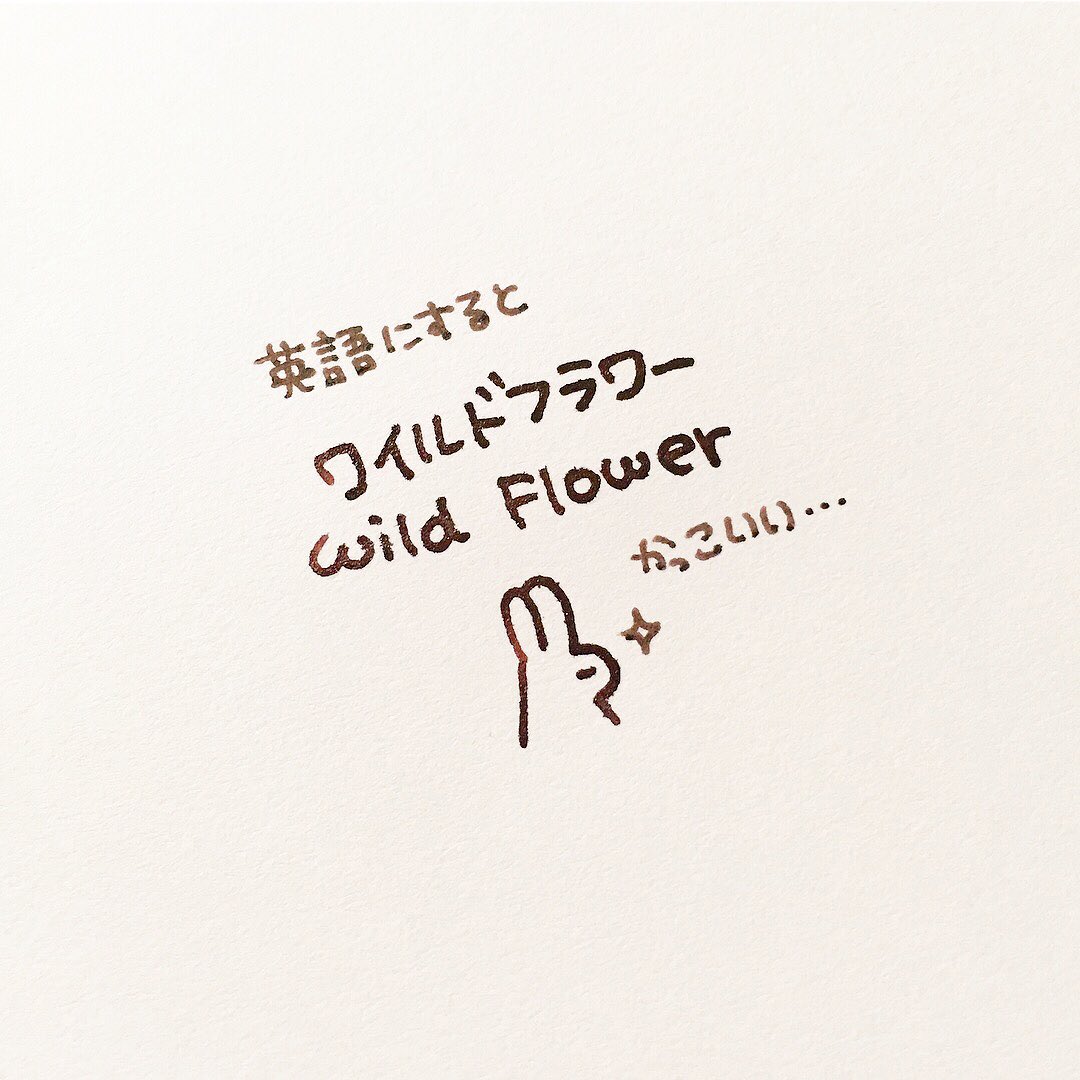 英語にすると
ワイルドフラワー
wild Flower
かっこいい…